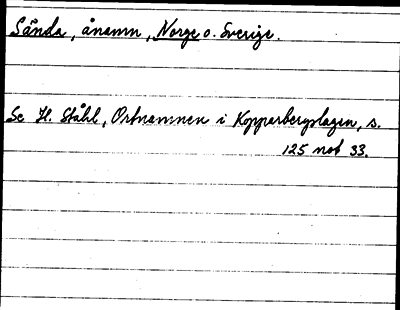 Sända, ånamn, Norge o. Sverige.
Se H. Ståhl, Ortnamnen i Kopparbergslagen, s.
125 not 33.